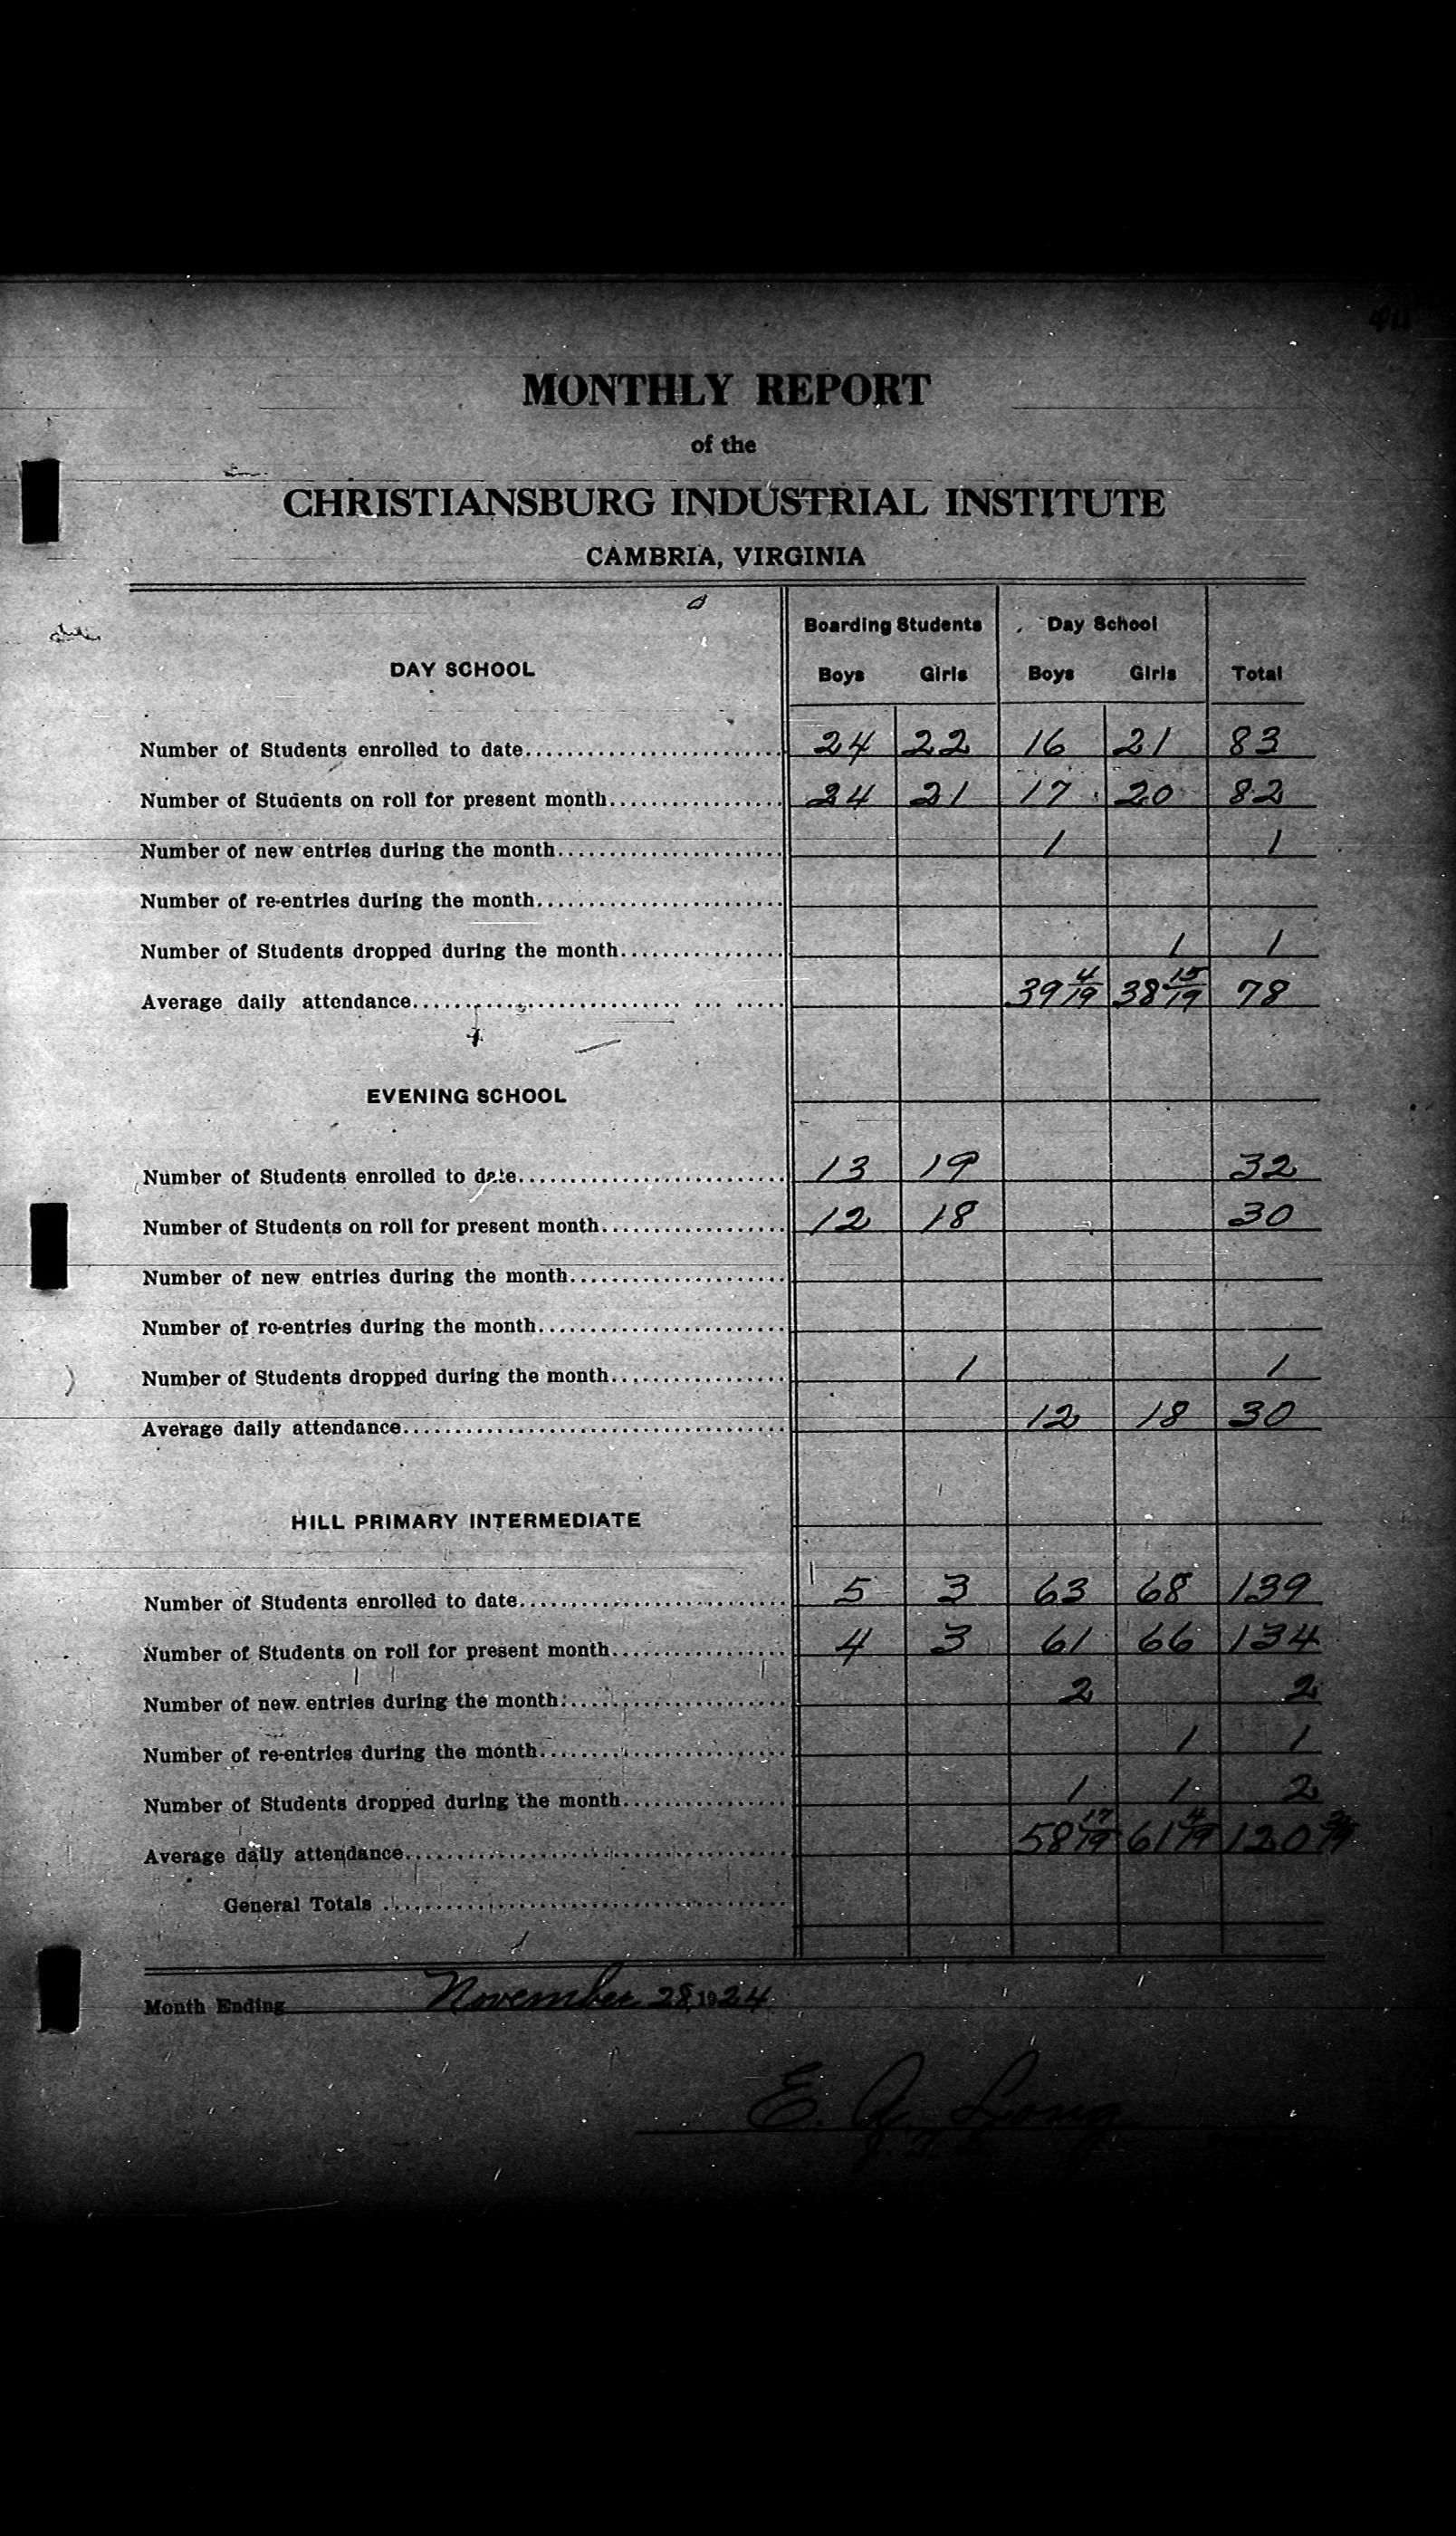 MONTHLY REPORT
of the
CHRISTIANSBURG INDUSTRIAL INSTITUTE
CAMBRIA, VIRGINIA
Boarding Students Day School
DAY SCHOOL Boys Girls Boys Girls Total
Number of Students enrolled to date 24 22 16 21 83
Number of Students on roll for present month 24 21 17 20 82
Number of new entries during the month 1 1
Number of re-entries during the month
Number of Students dropped during the month 1 1
Average daily attendance 39 4/19 38 15/19 78
EVENING SCHOOL
Number of Students enrolled to date 13 19 32
Number of Students on roll for present month 12 18 30
Number of new entries during the month
Number of re-entries during the month
Number of Students dropped during the month 1 1
Average daily attendance 12 18 30
HILL PRIMARY INTERMEDIATE
Number of Students enrolled to date 5 3 63 68 139
Number of Students on roll for present month 4 3 61 66 134
Number of new entries during the month 2 2
Number of re-entries during the month 1 1
Number of Students dropped during the month 1 1 2
Average daily attendance 58 17/19 61 4/19 120 2/19
General Totals
Month Ending November 28, 1924
E. A. Long